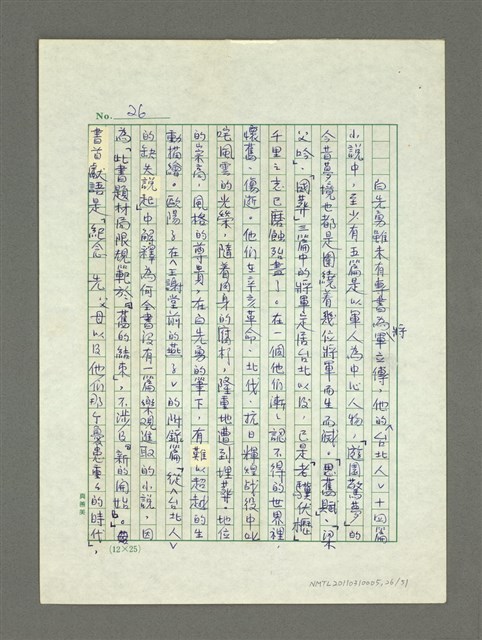 No. 26
白先勇雖未有專書為軍立傳,他的〈台北人〉十四篇
將
小說中,至少有五篇是以軍人為中心人物,「遊園驚夢」的
今昔夢境也都是圍繞着幾位將軍而生而滅。「思舊賦」、「梁
父吟」、「國葬」三篇中的將軍定居台北以後,已是「老驥伏櫪」
千里之志已磨蝕殆盡了。在一個他們漸認不得的世界裡,
懷舊、傷逝。他們生辛亥革命、北伐、抗日輝煌战役中叱
咤風雲的光榮,隨着肉身的腐朽,隆重地遭到埋葬。地位
的崇高,風格的尊貴,在白先勇的筆下,有難以超越的生
動描繪。歐陽子在〈王謝堂前的燕子〉的附錄篇「從〈台北人〉
的缺失說起」中解釋為何全書沒有一篇樂觀進取的小說,因
為「此書題材局限規範於『舊的結束』,不涉及『新的開始』。
書首獻語是「紀念 先父母以及他們那個憂患重重的時代」,
(12×25)
NMTL20110310005, 26/31